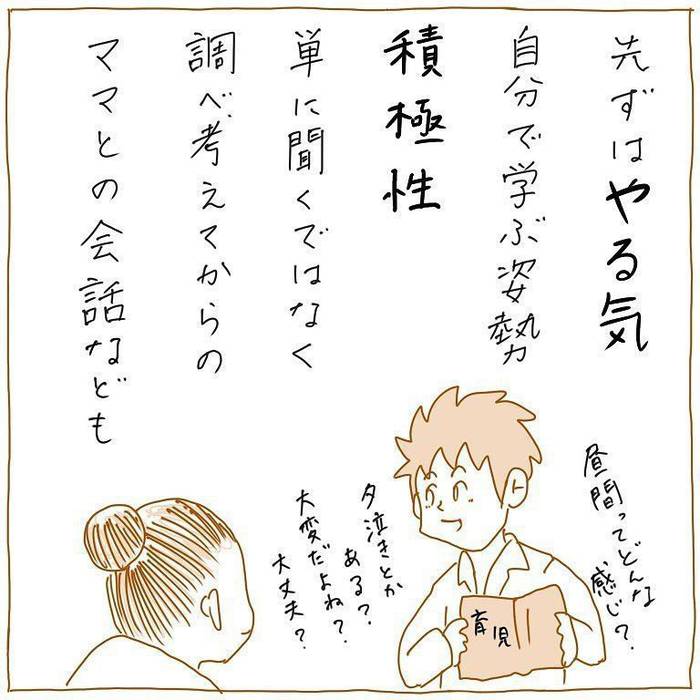 先ずはやる気
自分で学ぶ姿勢
積極性
単に聞くではなく
調べ考えてからの
ママとの会話なども
昼間ってどんな
感じ?
夕泣きとか
ある?
大変だよね?
大丈夫?
育児